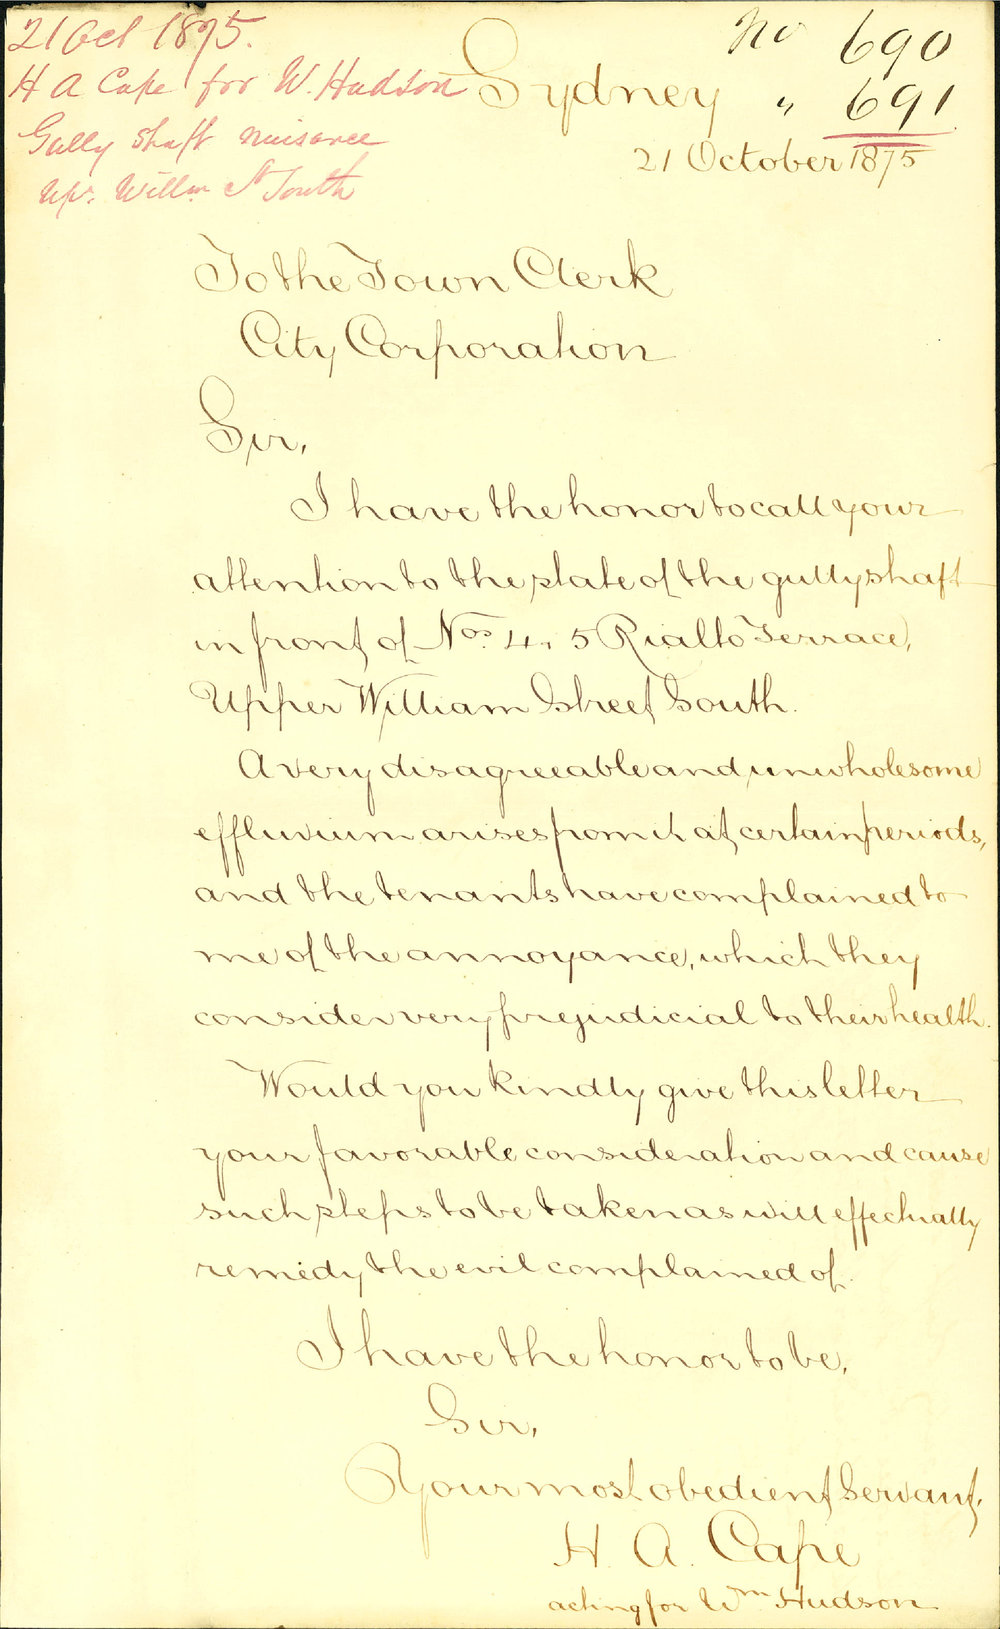 21 Oct 1875.
H A Cape for W. Hudson
Gully shaft nuisance
Upr. Willm St South
No 690
" 691
Sydney
21 October 1875
To the Town Clerk
City Corporation
Sir,
I have the honor to call your
attention to the state of the gully shaft
in front of Nos. 4, 5 Rialto Terrace,
Upper William Street South.
A very disagreeable and unwholesome
effluvium arises from it at certain periods,
and the tenants have complained to
me of the annoyance, which they
consider very prejudicial to their health.
Would you kindly give this letter
your favorable consideration and cause
such steps to be taken as will effectually
remedy the evil complained of.
I have the honor to be,
Sir,
Your most obedient Servant,
H. A. Cape
acting for Wm Hudson